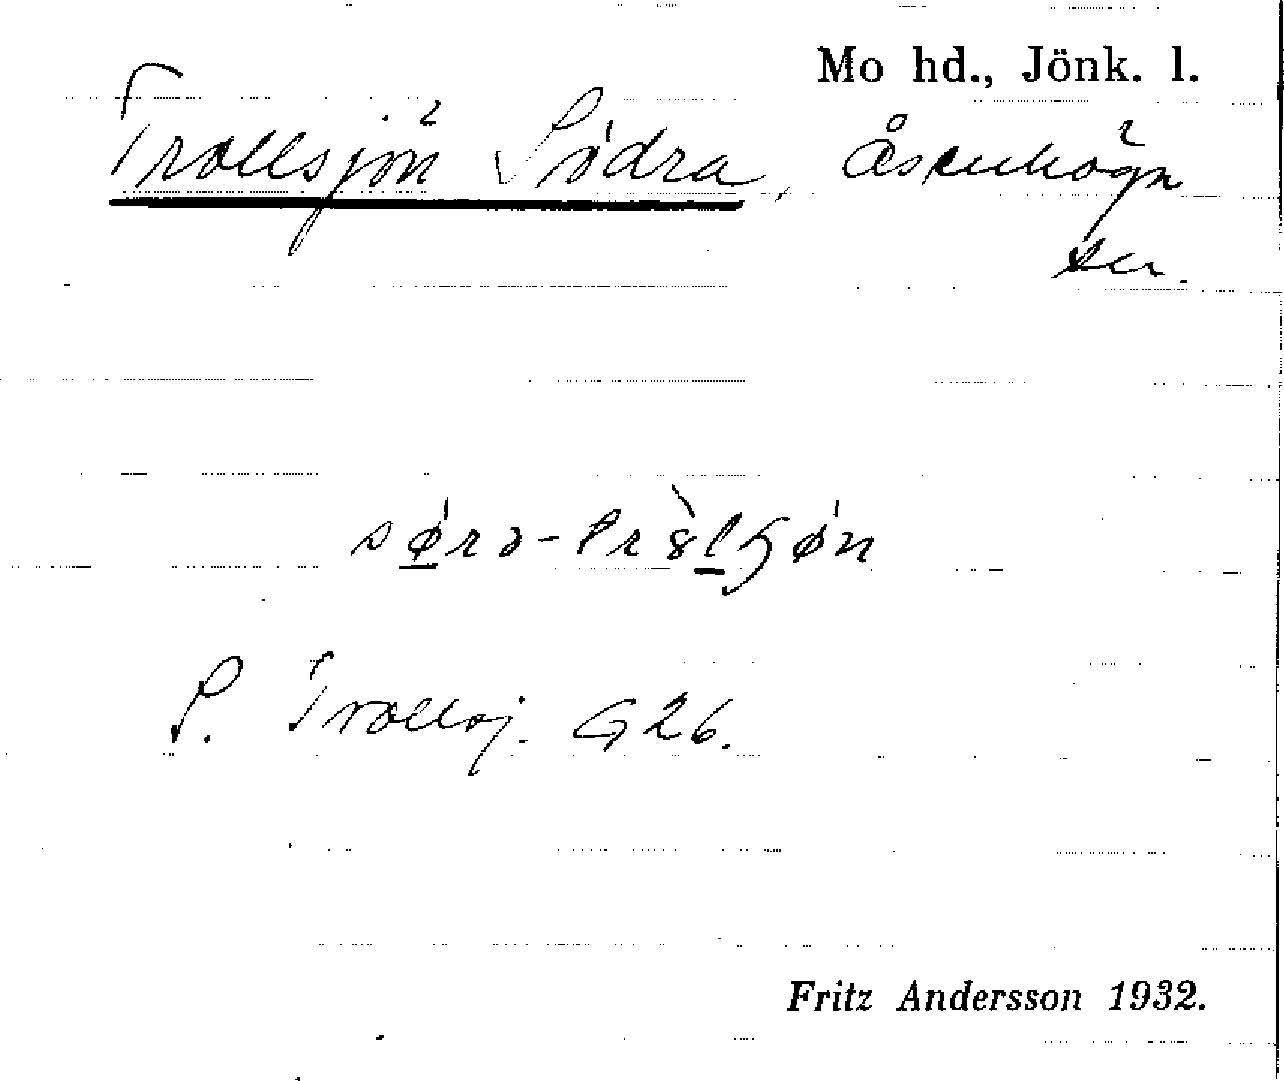 Mo hd., Jönk. l.
Trollsjön Södra, Åsenhöga
sn.
søra-
S. Trollsj. G 26.
Fritz Andersson 1932.